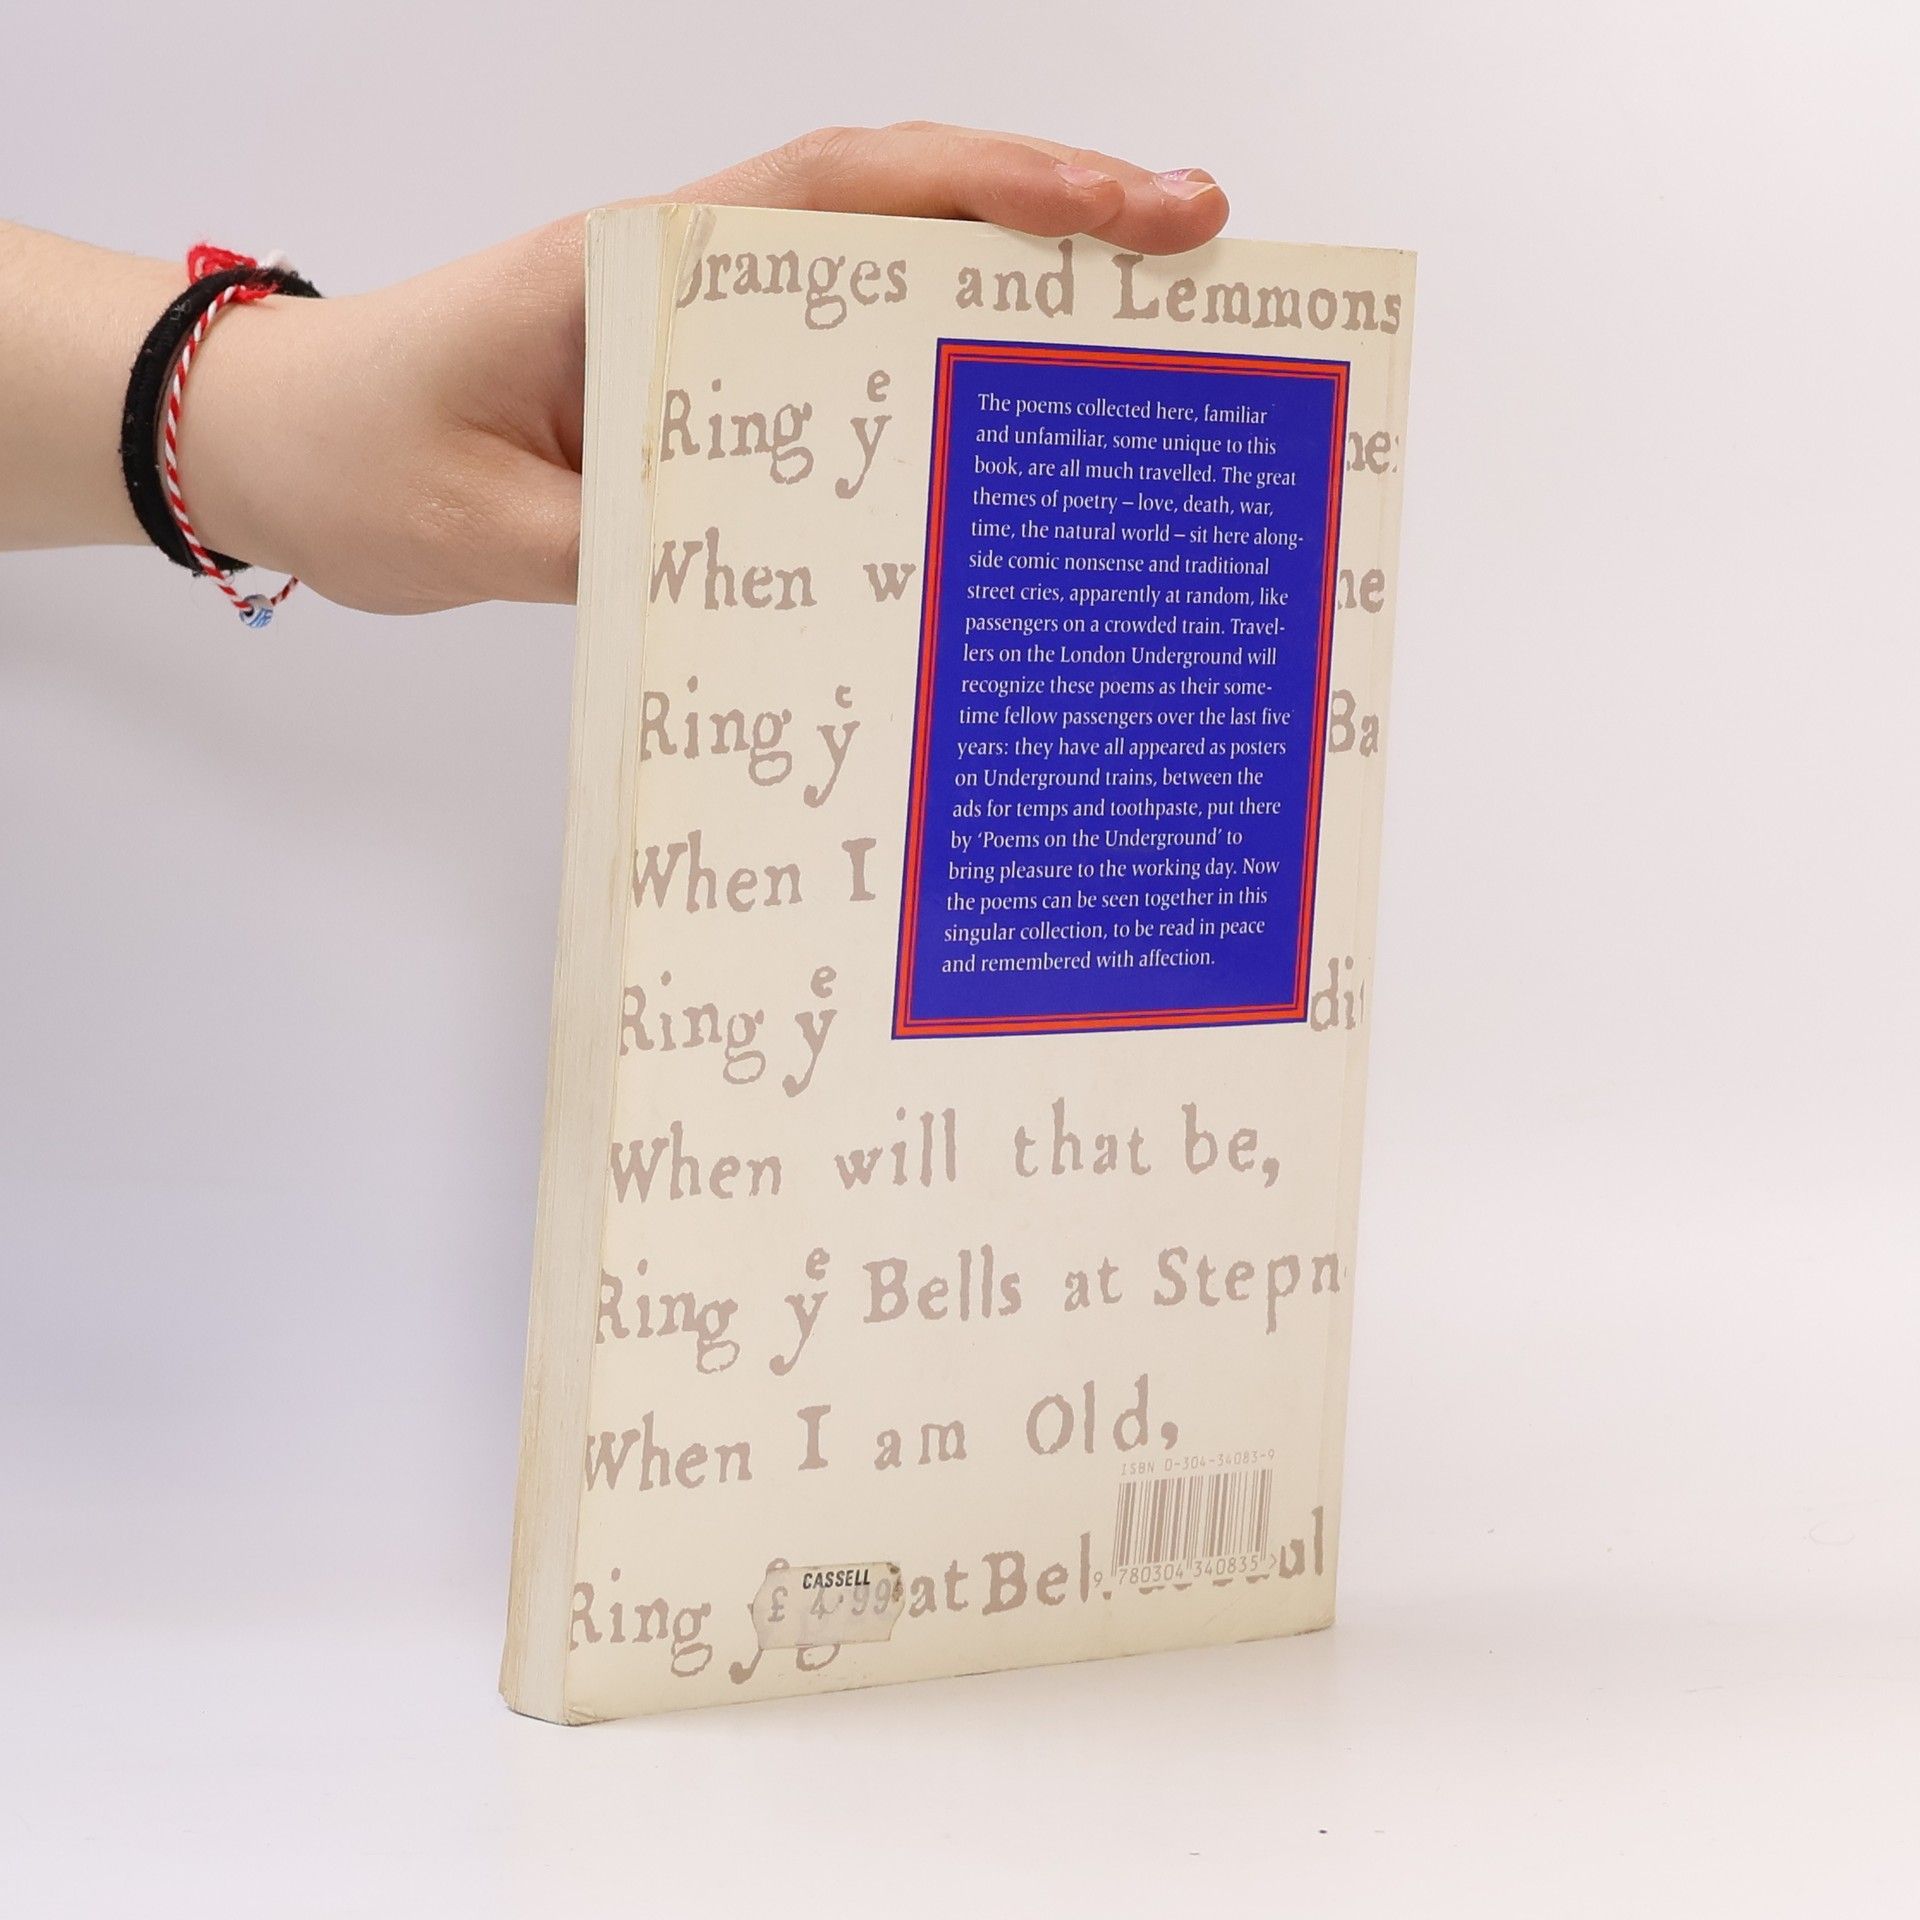 Oranges and Lemmons
Ring yᵉ
When
Ring yᵉ
When I
Ring yᵉ
When will that be,
Ring yᵉ Bells at Stepn
When I am Old,
Ring at Bel
The poems collected here, familiar
and unfamiliar, some unique to this
book, are all much travelled. The great
themes of poetry – love, death, war,
time, the natural world – sit here along-
side comic nonsense and traditional
street cries, apparently at random, like
passengers on a crowded train. Travel-
lers on the London Underground will
recognize these poems as their some-
time fellow passengers over the last five
years: they have all appeared as posters
on Underground trains, between the
ads for temps and toothpaste, put there
by ‘Poems on the Underground’ to
bring pleasure to the working day. Now
the poems can be seen together in this
singular collection, to be read in peace
and remembered with affection.
ISBN 0-304-34083-9
9 780304 340835 >
CASSELL
£ 4.99